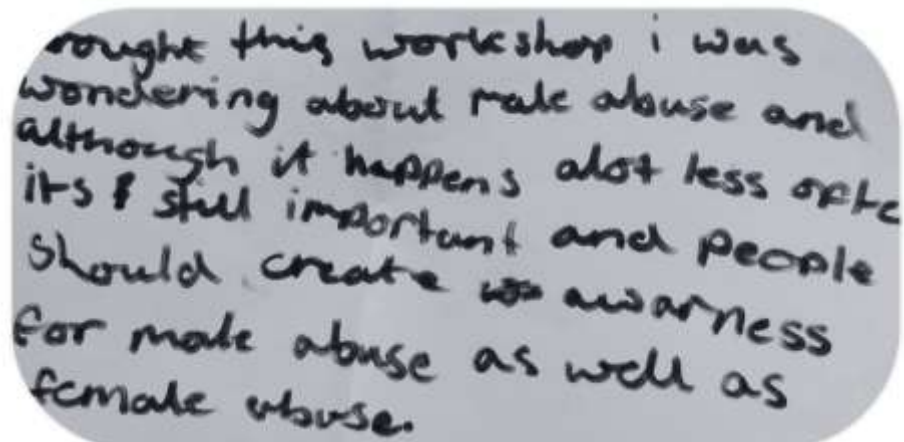 rought this workshop i was
wondering about male abuse and
although it happens alot less ofte
its still important and people
should create awarness
for male abuse as well as
female abuse.